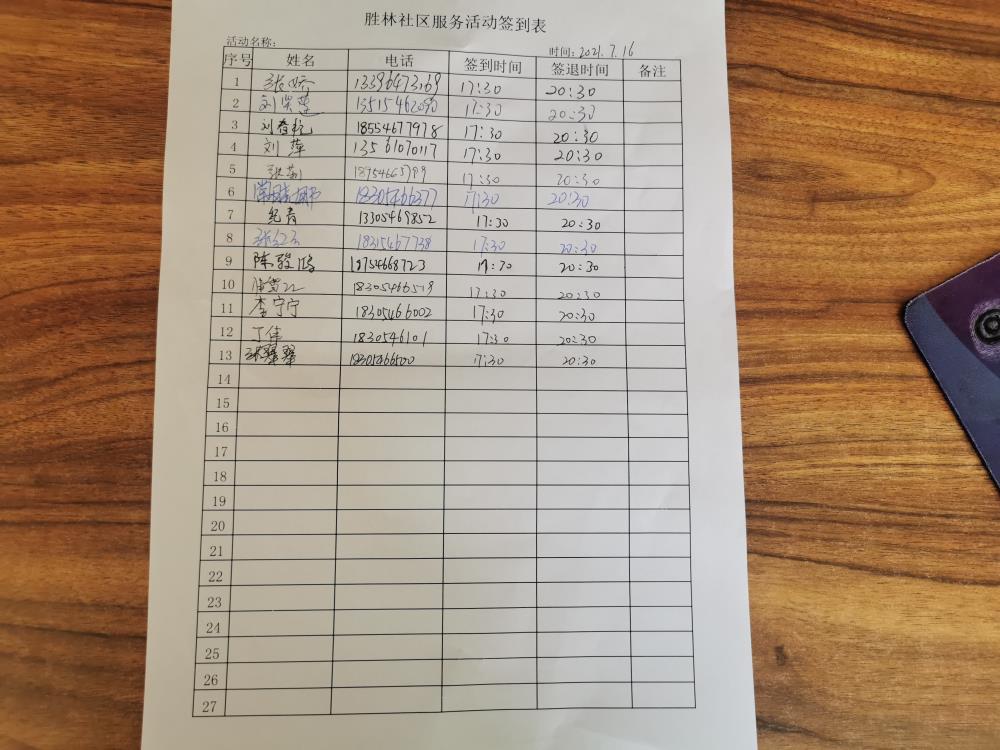 胜林社区服务活动签到表
活动名称: 时间: 2021.7.16
序号 姓名 电话 签到时间 签退时间 备注
1 张娇 13396473169 17:30 20:30
2 刘 17:30 20:30
3 刘春 18554677978 17:30 20:30
4 刘萍 13561070117 17:30 20:30
5 张莉 17:30 20:30
6 18305466377 17:30 20:30
7 纪青 13305469852 17:30 20:30
8 张红玉 18315467738 17:30 20:30
9 陈骏鸿 18754668723 20:30
10 18305466519 17:30 20:30
11 李宁宁 18305466002 17:30 20:30
12 丁伟 1830546101 17:30 20:30
13 张翠翠 18305466500 17:30 20:30
14
15
16
17
18
19
20
21
22
23
24
25
26
27